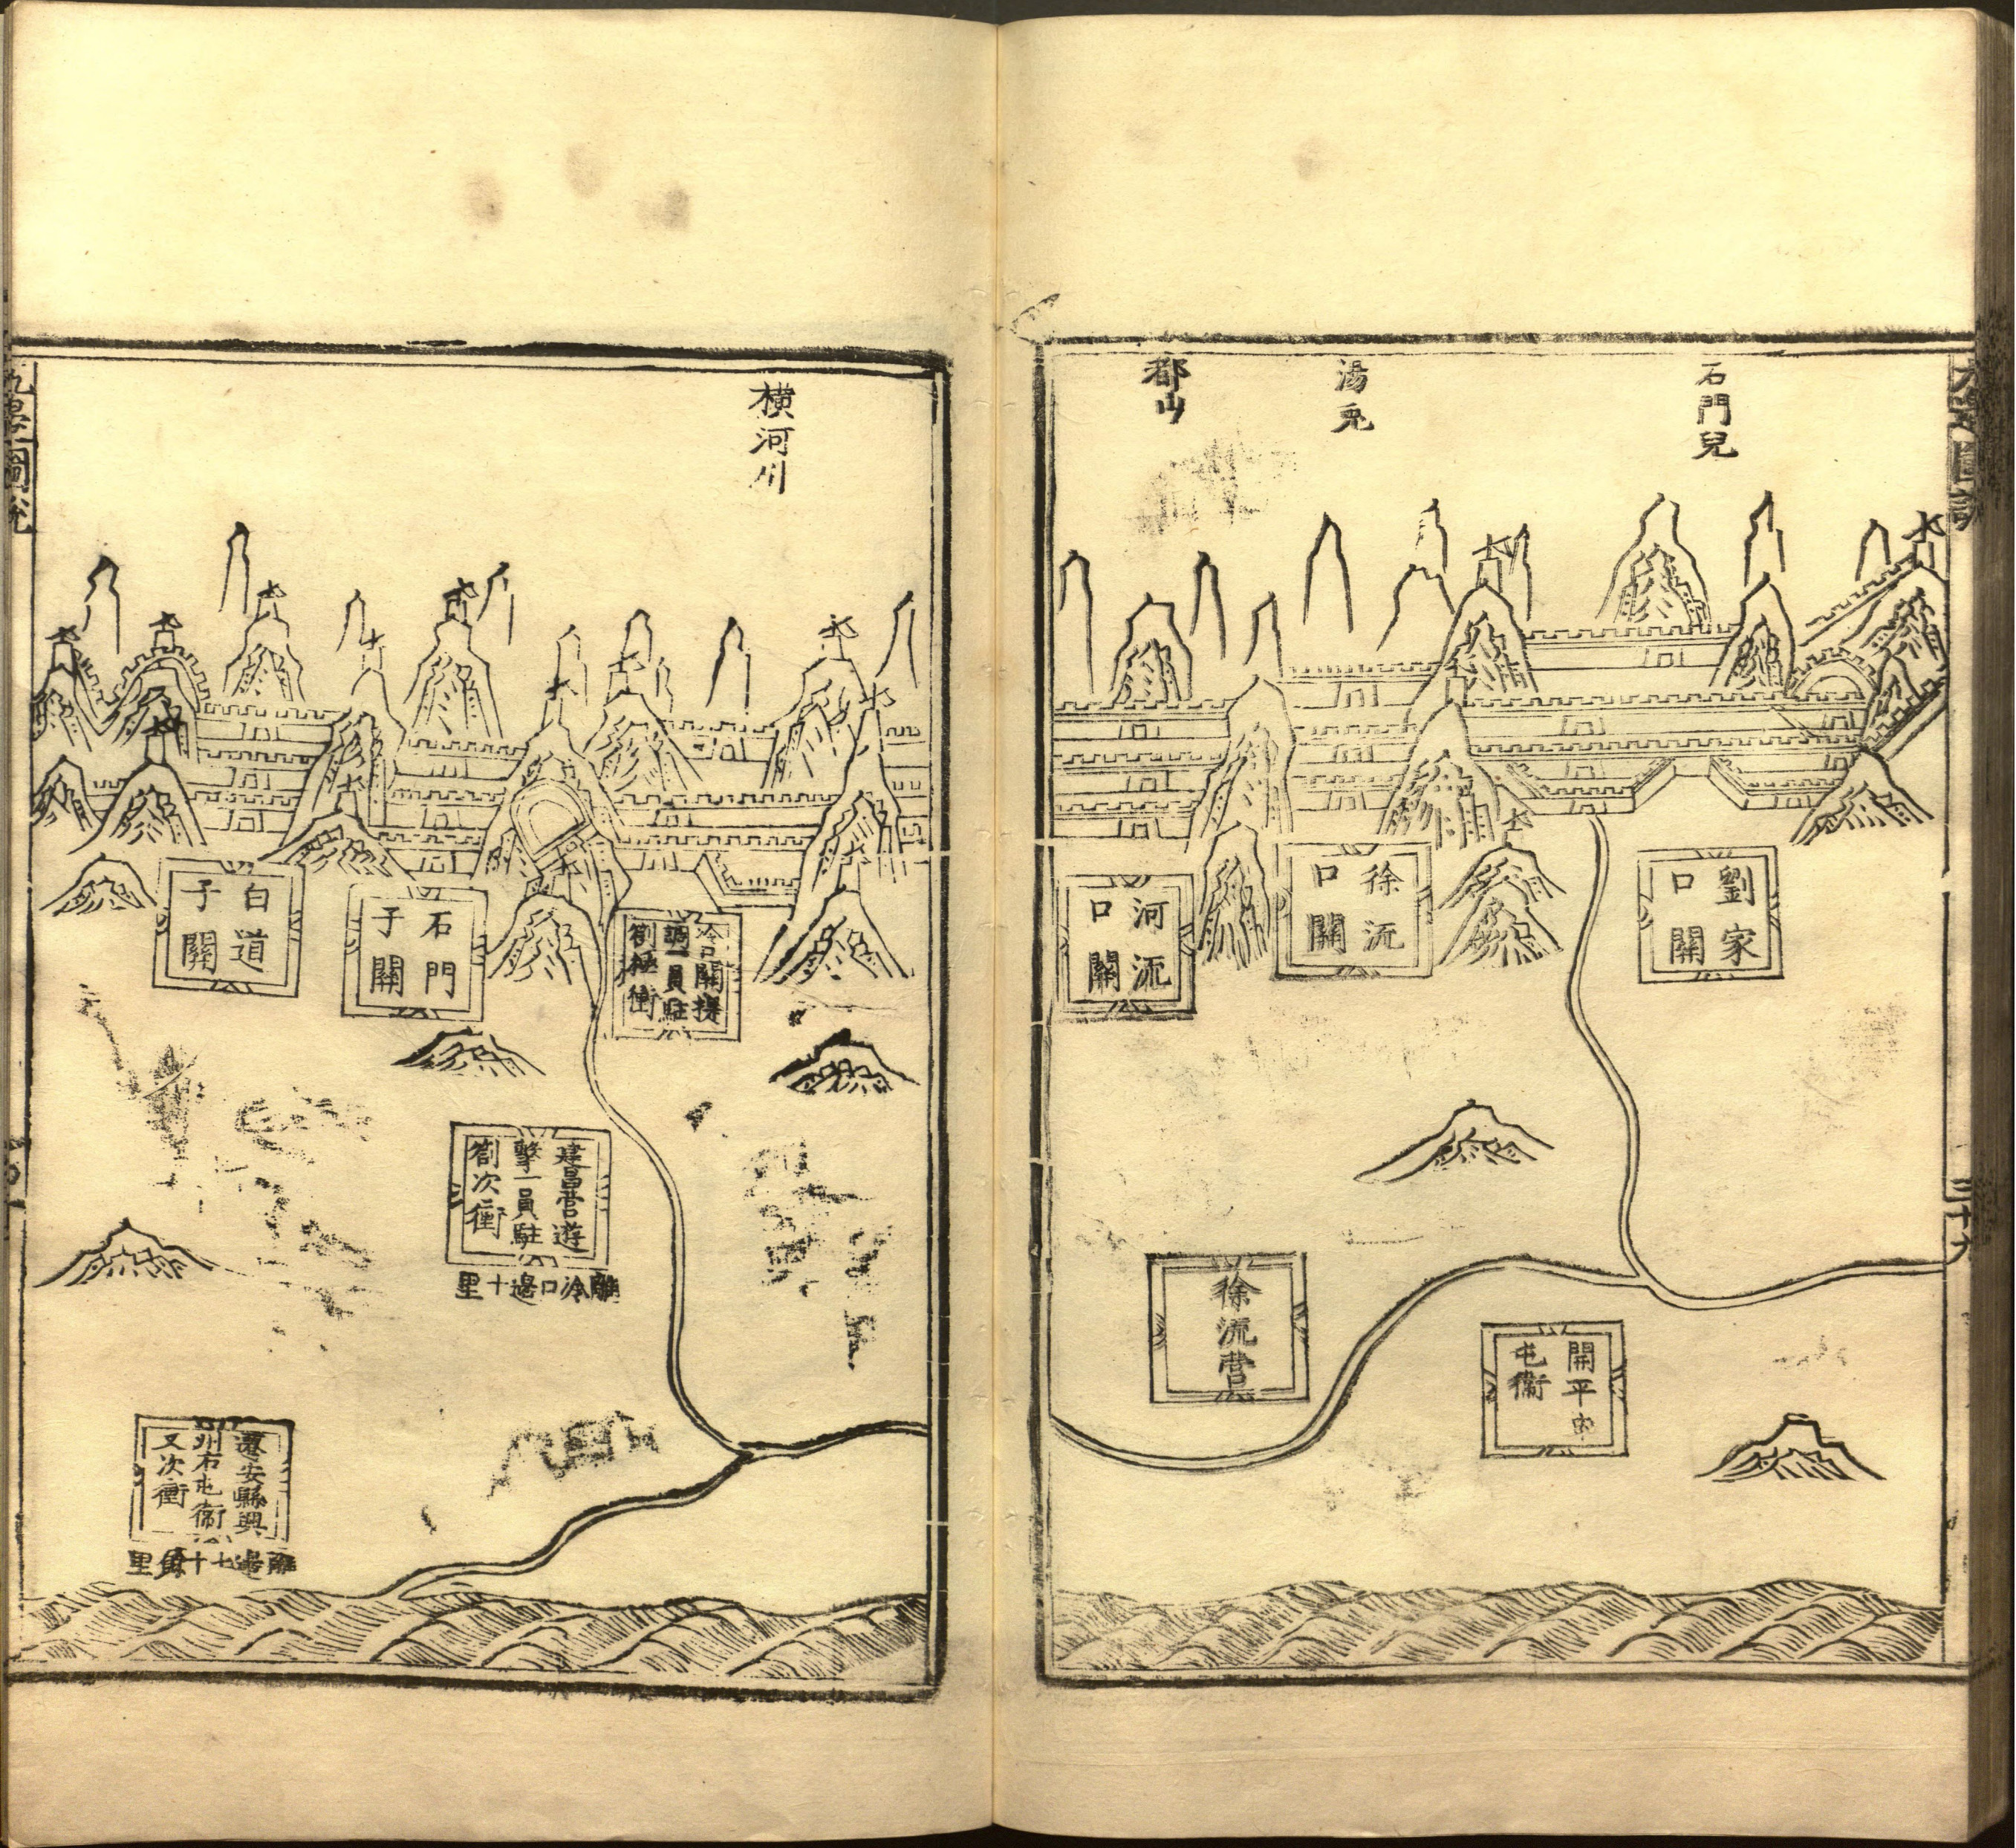 石門兒
湯兎
都山
劉家
口關
徐流
口關
河流
口關
徐流營
開平中
屯衞
橫河川
冷口關提
調一員駐
劄極衝
石門
子關
白道
子關
建昌營遊
擊一員駐
劄次衝
離冷口邊十里
遷安縣興
州右屯衞
又次衝
離邊七十里
九邊圖說